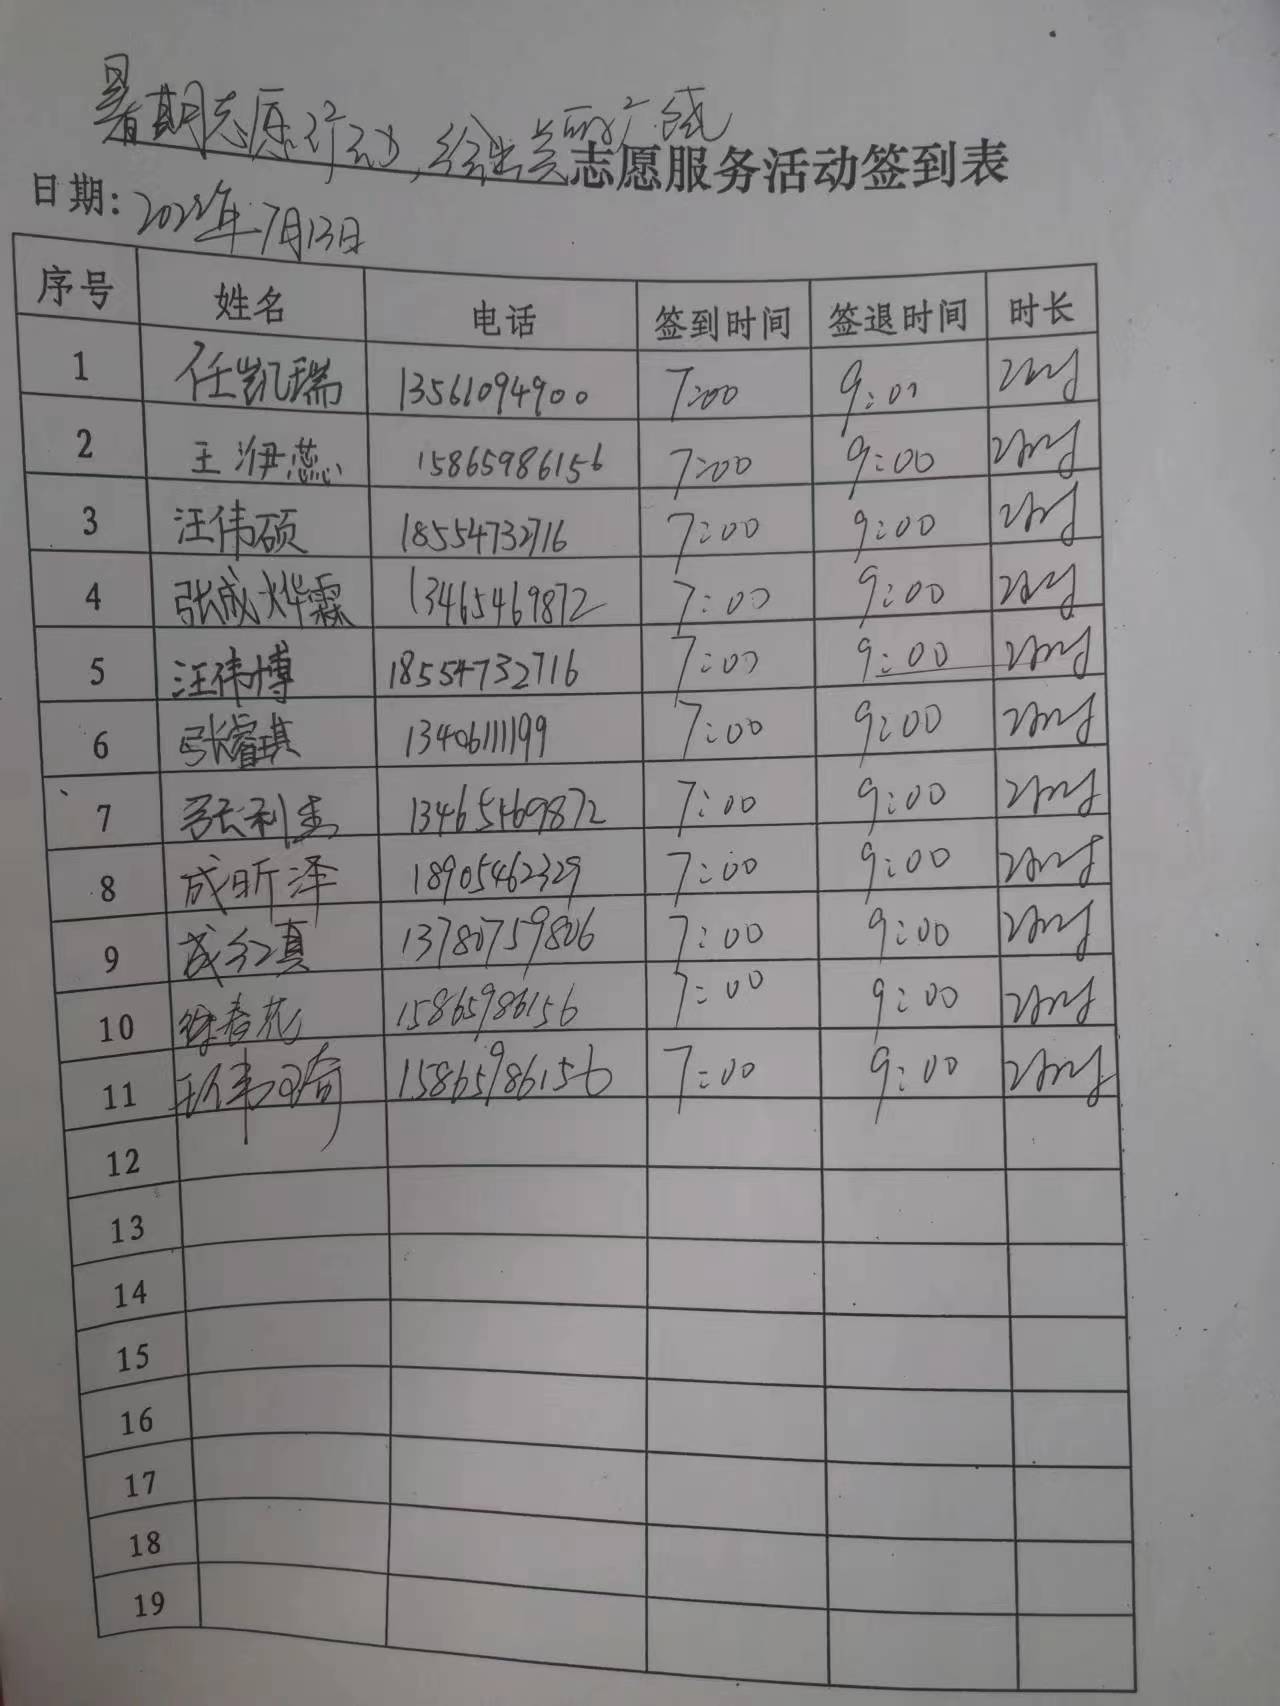 暑期志愿行动,绘出美丽产线
志愿服务活动签到表
日期: 2022年7月13日
序号 姓名 电话 签到时间 签退时间 时长
1 任凯瑞 13561094900 7:00 9:00
2 王洢蕊 15865986156 7:00 9:00
3 汪伟硕 18554732716 7:00 9:00
4 张成烨霖 13465469872 7:00 9:00
5 汪伟博 18554732716 7:00 9:00
6 张睿琪 13406111199 7:00 9:00
7 张利 13465469872 7:00 9:00
8 成昕泽 18905462329 7:00 9:00
9 成红真 13780759806 7:00 9:00
10 徐春花 15865986156 7:00 9:00
11 15865986156 7:00 9:00
12
13
14
15
16
17
18
19